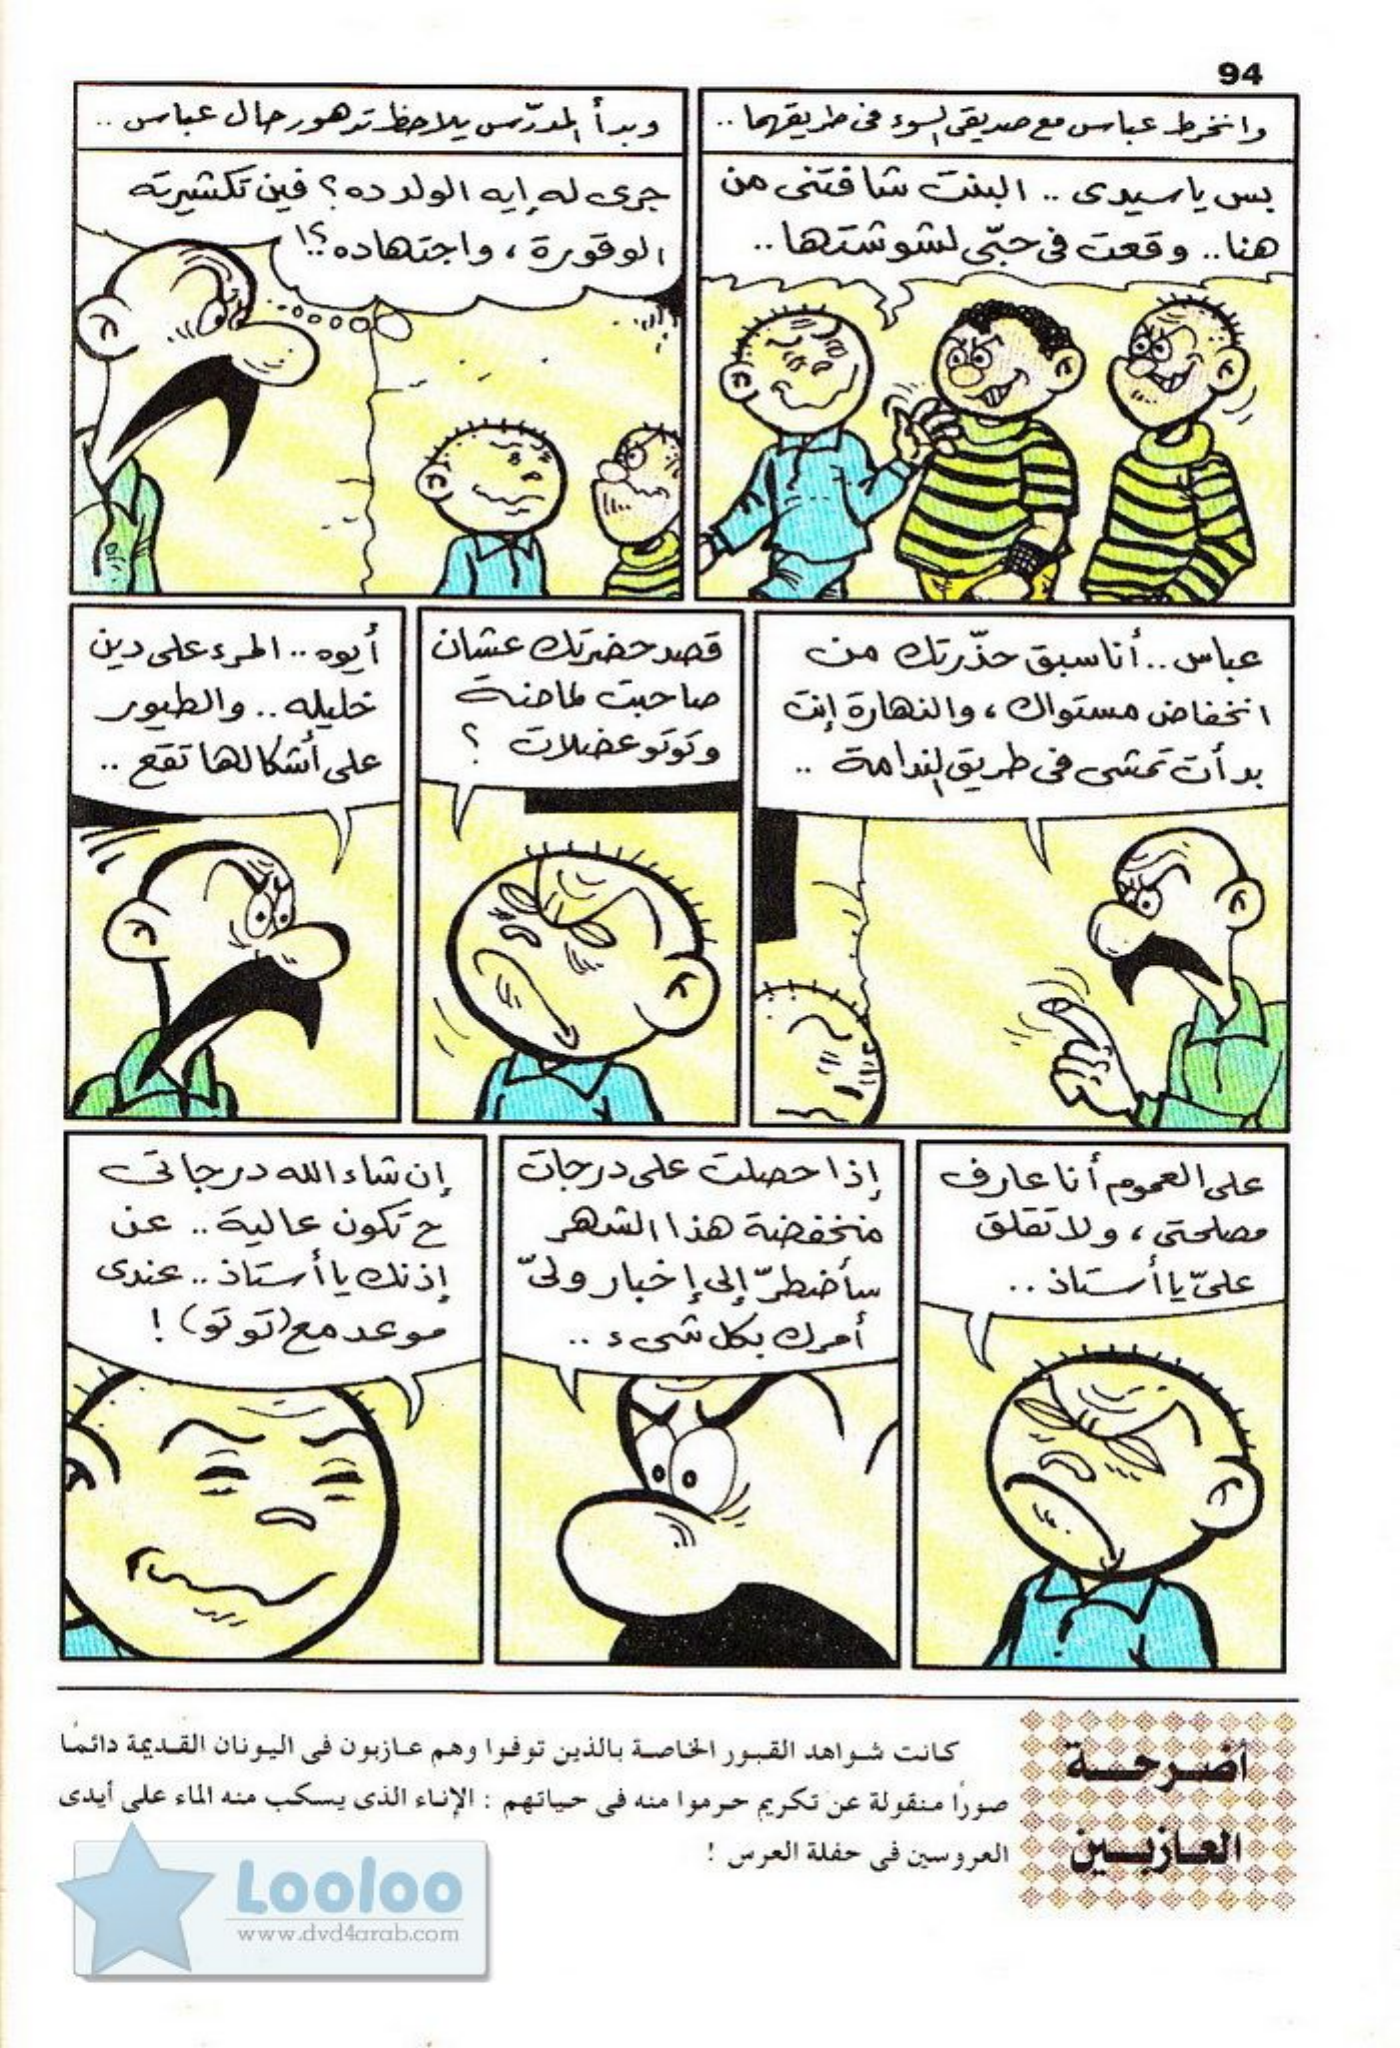 94
وانخرط عباس مع صديقى السوء فى طريقهما ..
بس ياسيدى .. البنت شافتنى من
هنا .. وقعت فى حبّى لشوشتها ..
وبدأ المدرّس يلاحظ تدهور حال عباس ..
جرى له إيه الولد ده ؟ فين تكشيرته
الوقورة ، واجتهاده ؟!
عباس .. أنا سبق حذّرتك من
انخفاض مستواك ، والنهارة إنت
بدأت تمشى فى طريق الندامة ..
قصد حضرتك عشان
صاحبت لماضة
وتوتو عضلات ؟
أيوه .. المرء على دين
خليله .. والطيور
على أشكالها تقع ..
على العموم أنا عارف
مصلحتى ، ولا تقلق
علىّ يا أستاذ ..
إذا حصلت على درجات
منخفضة هذا الشهر
سأضطرّ إلى إخبار ولىّ
أمرك بكل شىء ..
إن شاء الله درجاتى
ح تكون عالية .. عن
إذنك يا أستاذ .. عندى
موعد مع (توتو) !
أضرحة
العازبين
كانت شواهد القبور الخاصة بالذين توفوا وهم عازبون فى اليونان القديمة دائمًا
صورًا منقولة عن تكريم حرموا منه فى حياتهم : الإناء الذى يسكب منه الماء على أيدى
العروسين فى حفلة العرس !
Looloo
www.dvd4arab.com